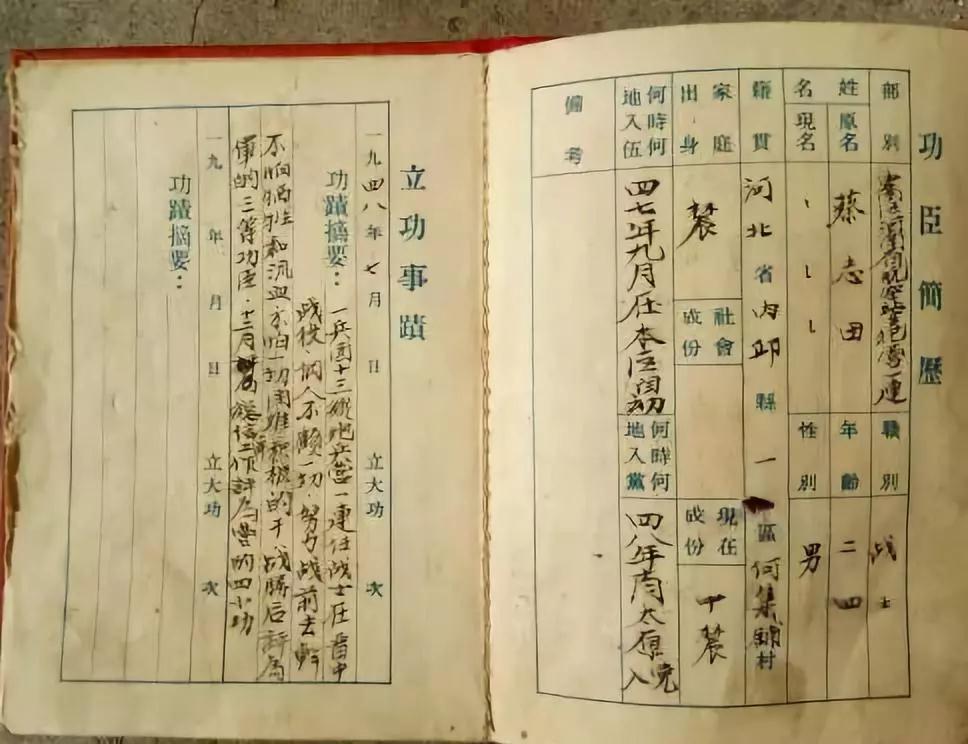 功臣簡歷
部別
職別 战士
姓名 原名 蔡志田
現名
年齡 二四
性別 男
籍貫 河北省内邱縣一區何集鋪村
家庭出身 農
社會成份
現在成份 中農
何時何地入伍 四七年九月在本区
何時何地入黨 四八年 太原入党
備考
立功事蹟
一九四八年七月 日 立大功 次
功蹟摘要： 一兵团十三纵炮兵营一連任战士在晋中
战役，個人不顾一切，努力战前去
不怕牺牲和流血，不怕一切困难积极的干，战勝后評为
軍的三等功臣，十二月 通信工作評为營的四小功
一九 年 月 日 立大功 次
功蹟摘要：